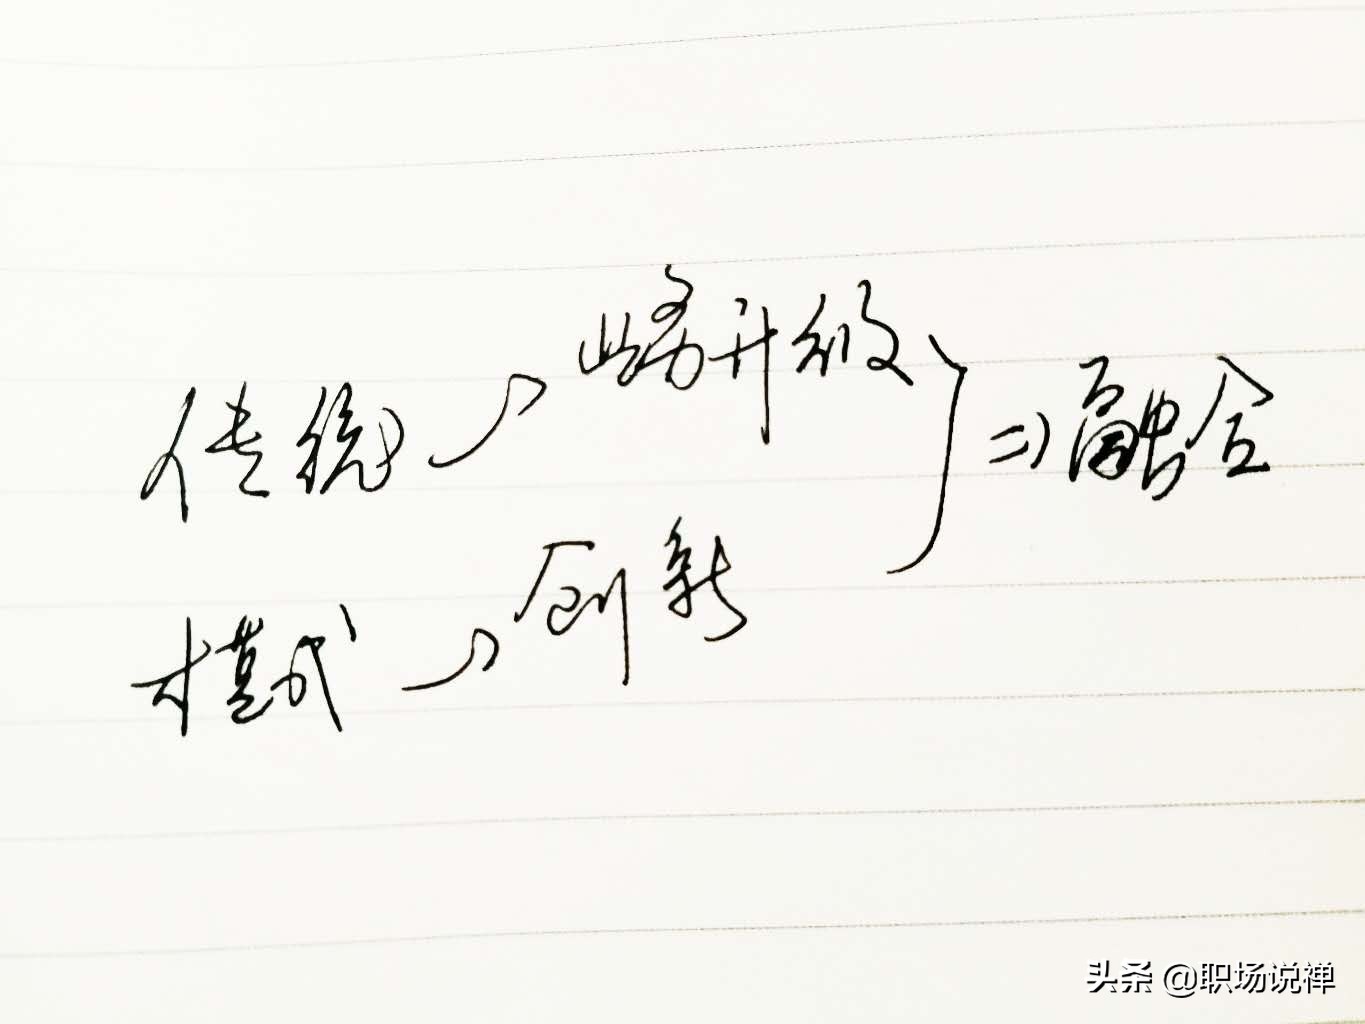 传统 → 业务升级
模式 → 创新
} => 融合
头条 @职场说禅